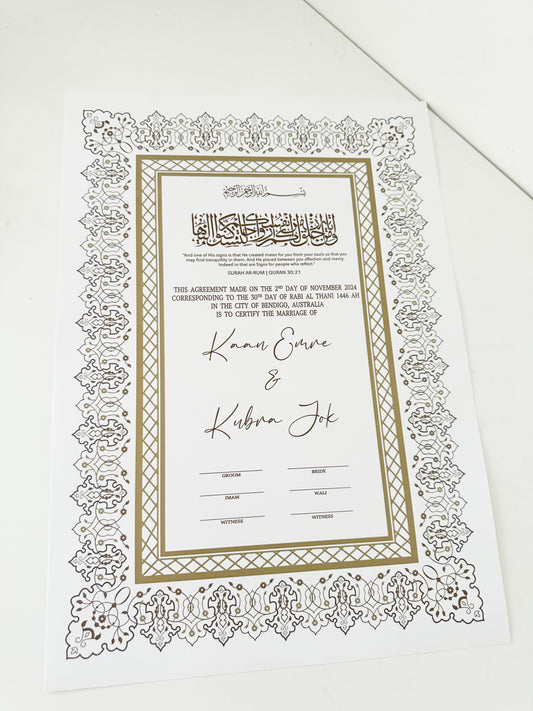 بسم الله الرحمن الرحيم
"And one of His signs is that He created mates for you from your souls so that you
may find tranquility in them. And He placed between you affection and mercy.
Indeed in that are Signs for people who reflect."
SURAH AR-RUM | QURAN 30:21
THIS AGREEMENT MADE ON THE 2ND DAY OF NOVEMBER 2024
CORRESPONDING TO THE 30TH DAY OF RABI AL THANI 1446 AH
IN THE CITY OF BENDIGO, AUSTRALIA
IS TO CERTIFY THE MARRIAGE OF
Kaan Emre
&
Kubra Jok
GROOM BRIDE
IMAM WALI
WITNESS WITNESS